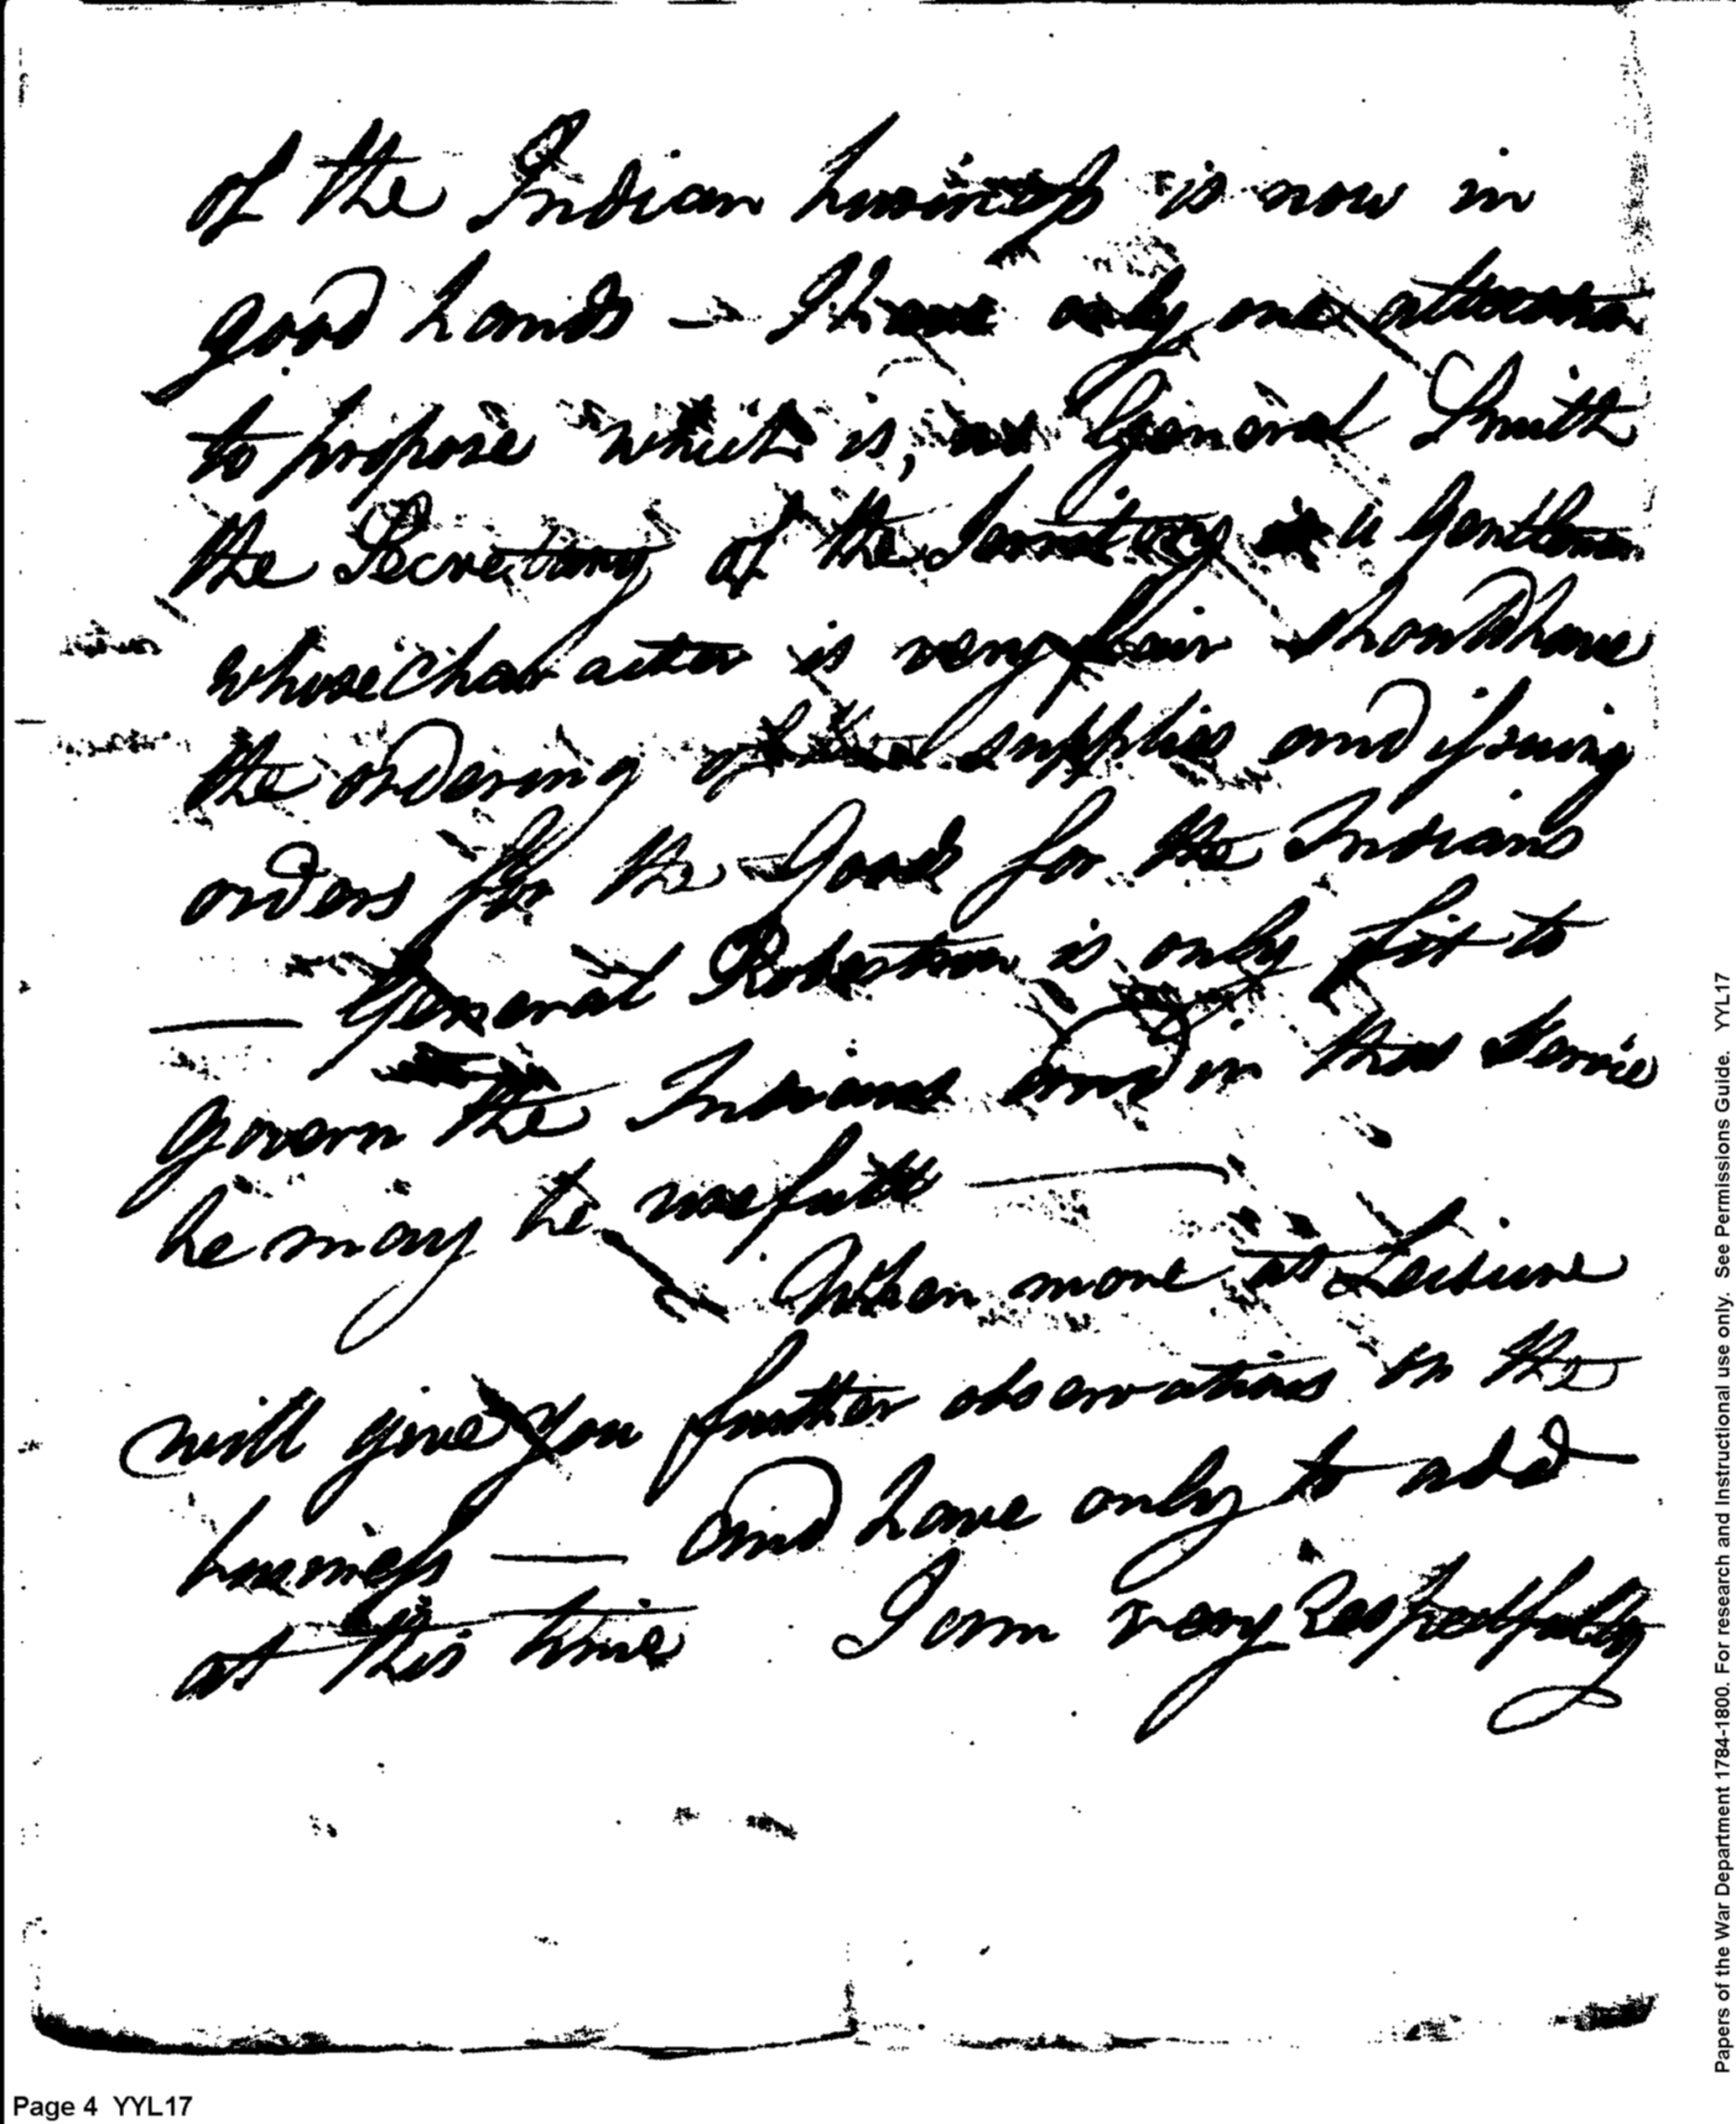 of the Indian business is now in
good hands — I have only one alteration
to propose which is, that General Smith
the Secretary of the Territory is a Gentleman
whose character is very fair should have
the ordering of supplies and issuing
orders for the Goods for the Indians
— General Robertson is only fit to
govern the Indians and in that Service
he may be usefull —
When more at Leisure
will give you further observations on the
business — and have only to add
at this time I am very Respectfully
Page 4 YYL17
Papers of the War Department 1784-1800. For research and Instructional use only. See Permissions Guide. YYL17